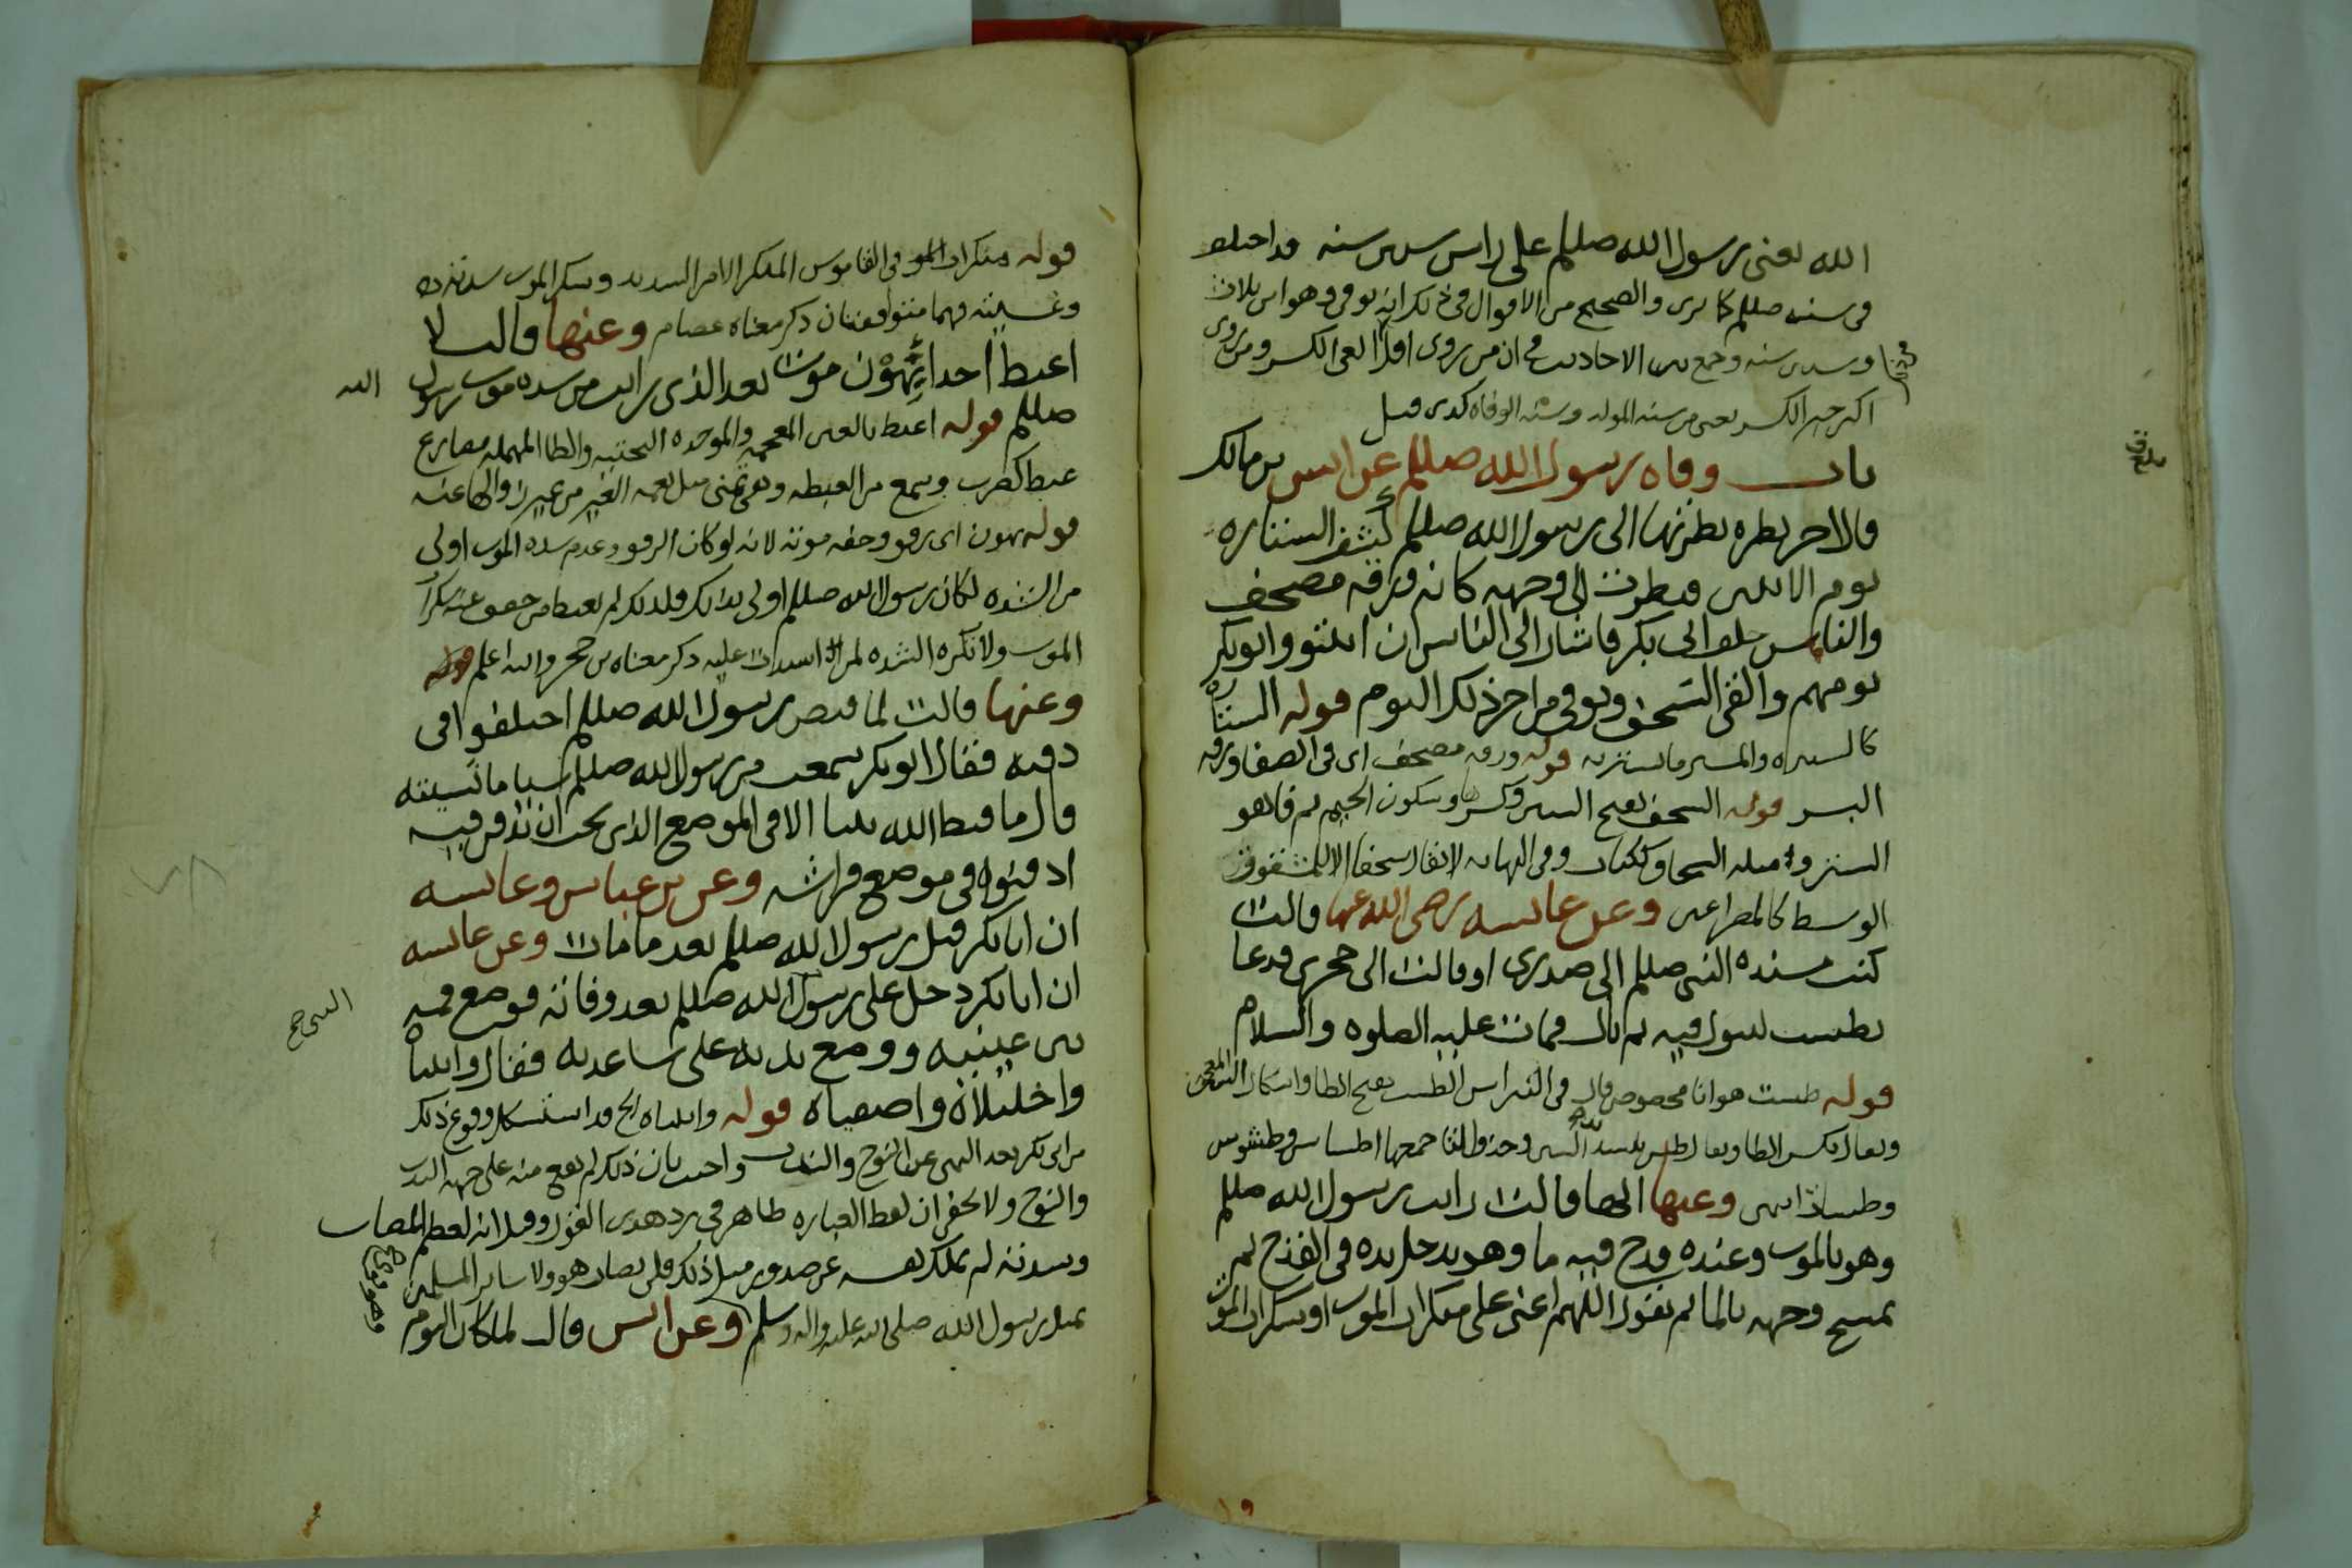 الله يعنى رسول الله صللم على راس ستين سنه وقد اختلف
فى سنه صللم كما ترى والصحيح من الاقوال فى ذلك انه توفى وهو ابن ثلاث
وستين سنه وجمع بين الاحاديث ان من روى اقل الغى الكسر ومن روى
اكثر جبر الكسر يعنى من سنه المولد وسنه الوفاه كذى قيل
باب وفاه رسول الله صللم عن انس بن مالك
قال اخر نظره نظرتها الى رسول الله صللم كشف الستاره
يوم الاثنين فنظرت الى وجهه كانه ورقه مصحف
والناس خلف ابى بكر فاشار الى الناس ان اثبتوا وابو بكر
يومهم والقى السجف وتوفى من اخر ذلك اليوم قوله الستاره
كالستره والستر ما يستتر به قوله ورقه مصحف اى فى الصفا ورقه
البشر قوله السجف بفتح السين وكسرها وسكون الجيم ثم فا هو
الستر ومثله السجاف ككتاب وفى النهايه لا يقال سجفا الا للمشقوق
الوسط كالمصراعين وعن عايشه رضى الله عنها قالت
كنت مسنده النبى صللم الى صدرى او قالت الى حجرى فدعا
بطست ليبول فيه ثم بال فمات عليه الصلوه والسلام
قوله طست هو انا مخصوص قال فى النبراس الطست بفتح الطا واسكان السين
ويقال بكسر الطا ويقال طس بتشديد السين وحذف التا جمعها اطساس وطسوس
وطسات انتهى وعنها انها قالت رايت رسول الله صللم
وهو بالموت وعنده قدح فيه ما وهو يدخل يده فى القدح ثم
يمسح وجهه بالما ثم يقول اللهم اعنى على منكرات الموت او سكرات الموت
بلغ ق
قوله منكرات الموت فى القاموس المنكر الامر الشديد وسكر الموت شدته
وغشيته فهما متوافقان ذكر معناه عصام وعنها قالت لا
اغبط احدا يهون موت بعد الذى رايت من شده موت رسول الله
صللم قوله اغبط بالغين المعجمه والموحده التحتيه والطا المهمله مضارع
غبط كضرب وسمع من الغبطه وهى تمنى مثل نعمه الغير من غير زوالها عنه
قوله بهون اى برفق وخفه موته لانه لو كان الرفق وعدم شده الموت اولى
من الشده لكان رسول الله صللم اولى بذلك فلذلك لم يغبط من خفف عنه سكرات
الموت ولا تكره الشده لمن اشتدت عليه ذكر معناه بن حجر والله اعلم
وعنها قالت لما قبض رسول الله صللم اختلفوا فى
دفنه فقال ابو بكر سمعت من رسول الله صللم شيا ما نسيته
قال ما قبض الله نبيا الا فى الموضع الذى يحب ان يدفن فيه
ادفنوه فى موضع فراشه وعن بن عباس وعايشه
ان ابا بكر قبل رسول الله صللم بعد ما مات وعن عايشه
ان ابا بكر دخل على رسول الله صللم بعد وفاته فوضع فمه
بين عينيه ووضع يديه على ساعديه فقال وانبياه
واخليلاه واصفياه قوله وانبياه الخ قد استشكل وقوع ذلك
من ابى بكر بعد النهى عن النوح والندب واجيب بان ذلك لم يقع منه على جهه الندب
والنوح ولا يخفى ان لفظ العباره ظاهر فى رد هذى القول وقيل انه لعظم المصاب
وشدته لم يملك نفسه عن صدور مثل ذلك فلن يصاب هو ولا ساير المسلمين
بمثل رسول الله صلى الله عليه واله وسلم وعن انس قال لما كان اليوم
النبى صح